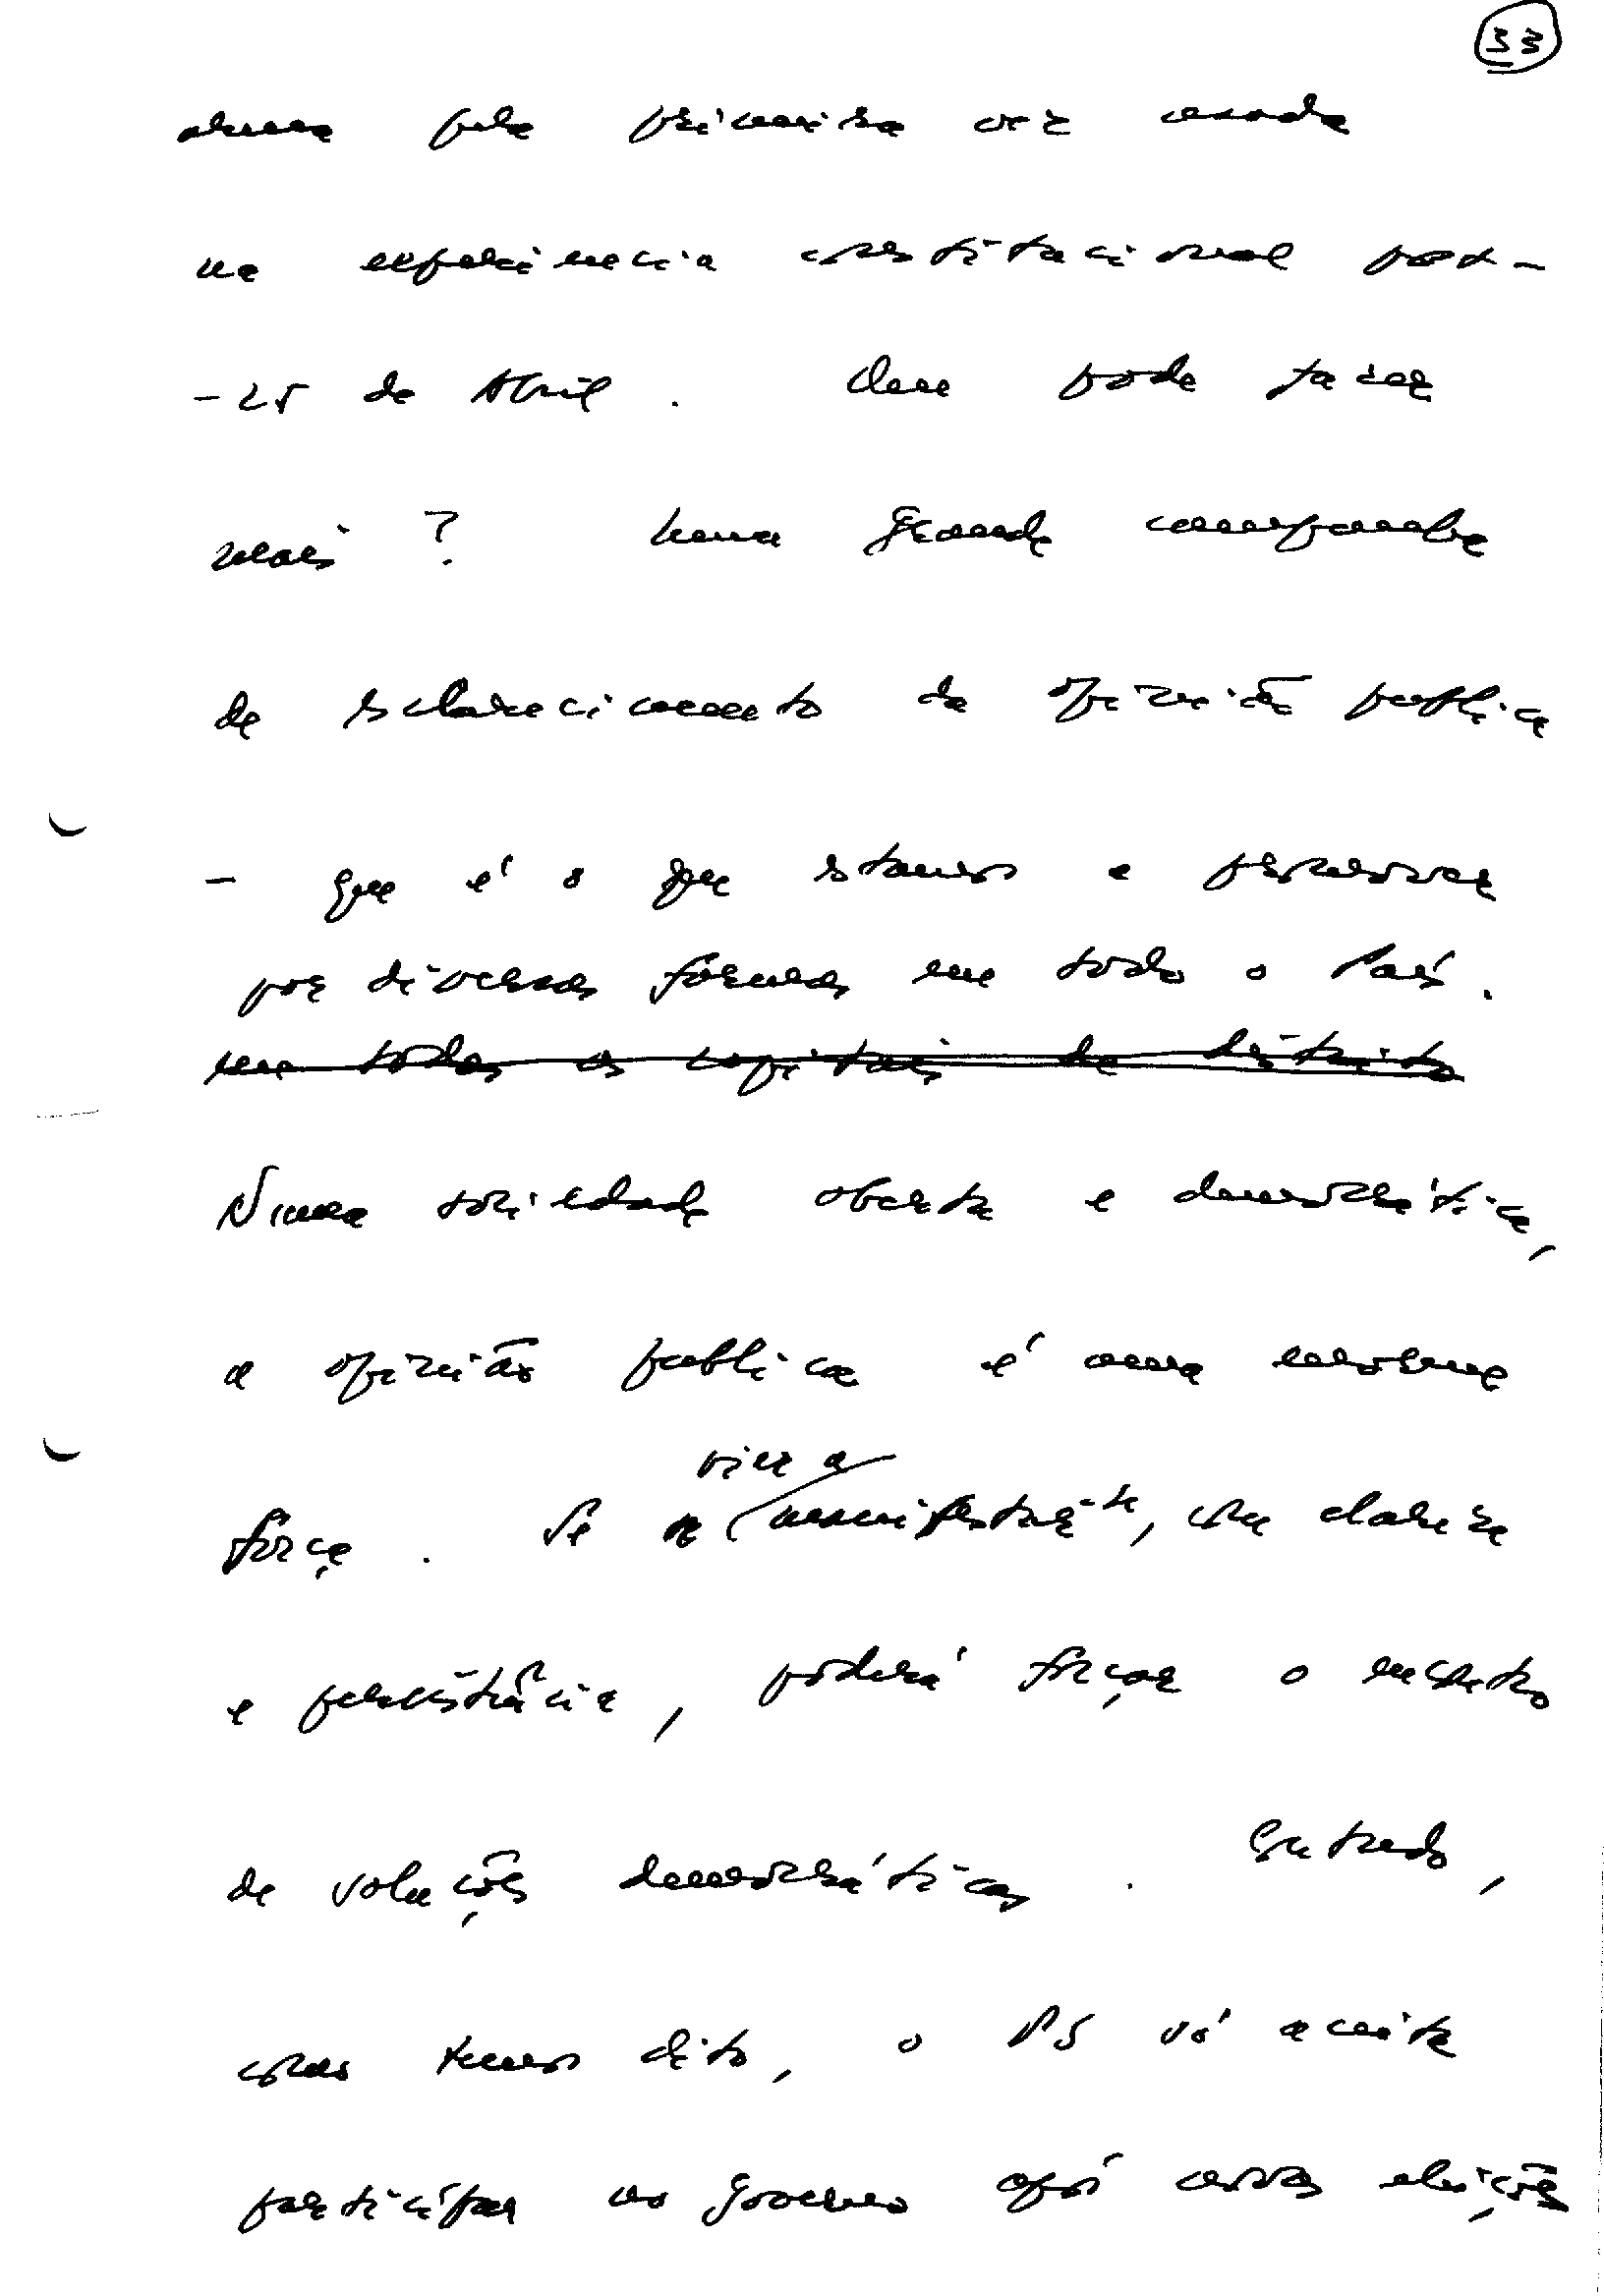 33
pela primeira vez usada
na experiência constitucional post-
-25 de Abril. Que pode fazer
mais? Uma grande campanha
de esclarecimento da opinião publica
- que é o que estamos a promover
por diversas formas em todo o País.
em todas as capitais de distrito
Numa sociedade aberta e democrática,
a opinião publica é uma enorme
força. Se vier a manifestar-se, com clareza
e persistência, poderá forçar o
de soluções democráticas. Contudo,
como temos dito, o PS só aceita
participar no governo após novas eleições